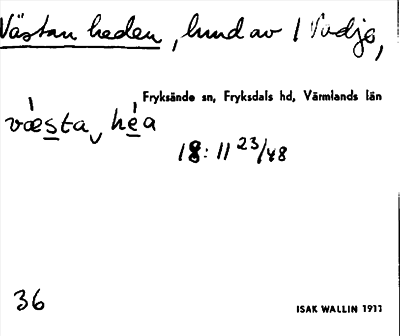 Västan heden, lund av 1 Vadje,
Fryksände sn, Fryksdals hd, Värmlands län
væsta hea
18: 11 23/48
36
ISAK WALLIN 1911